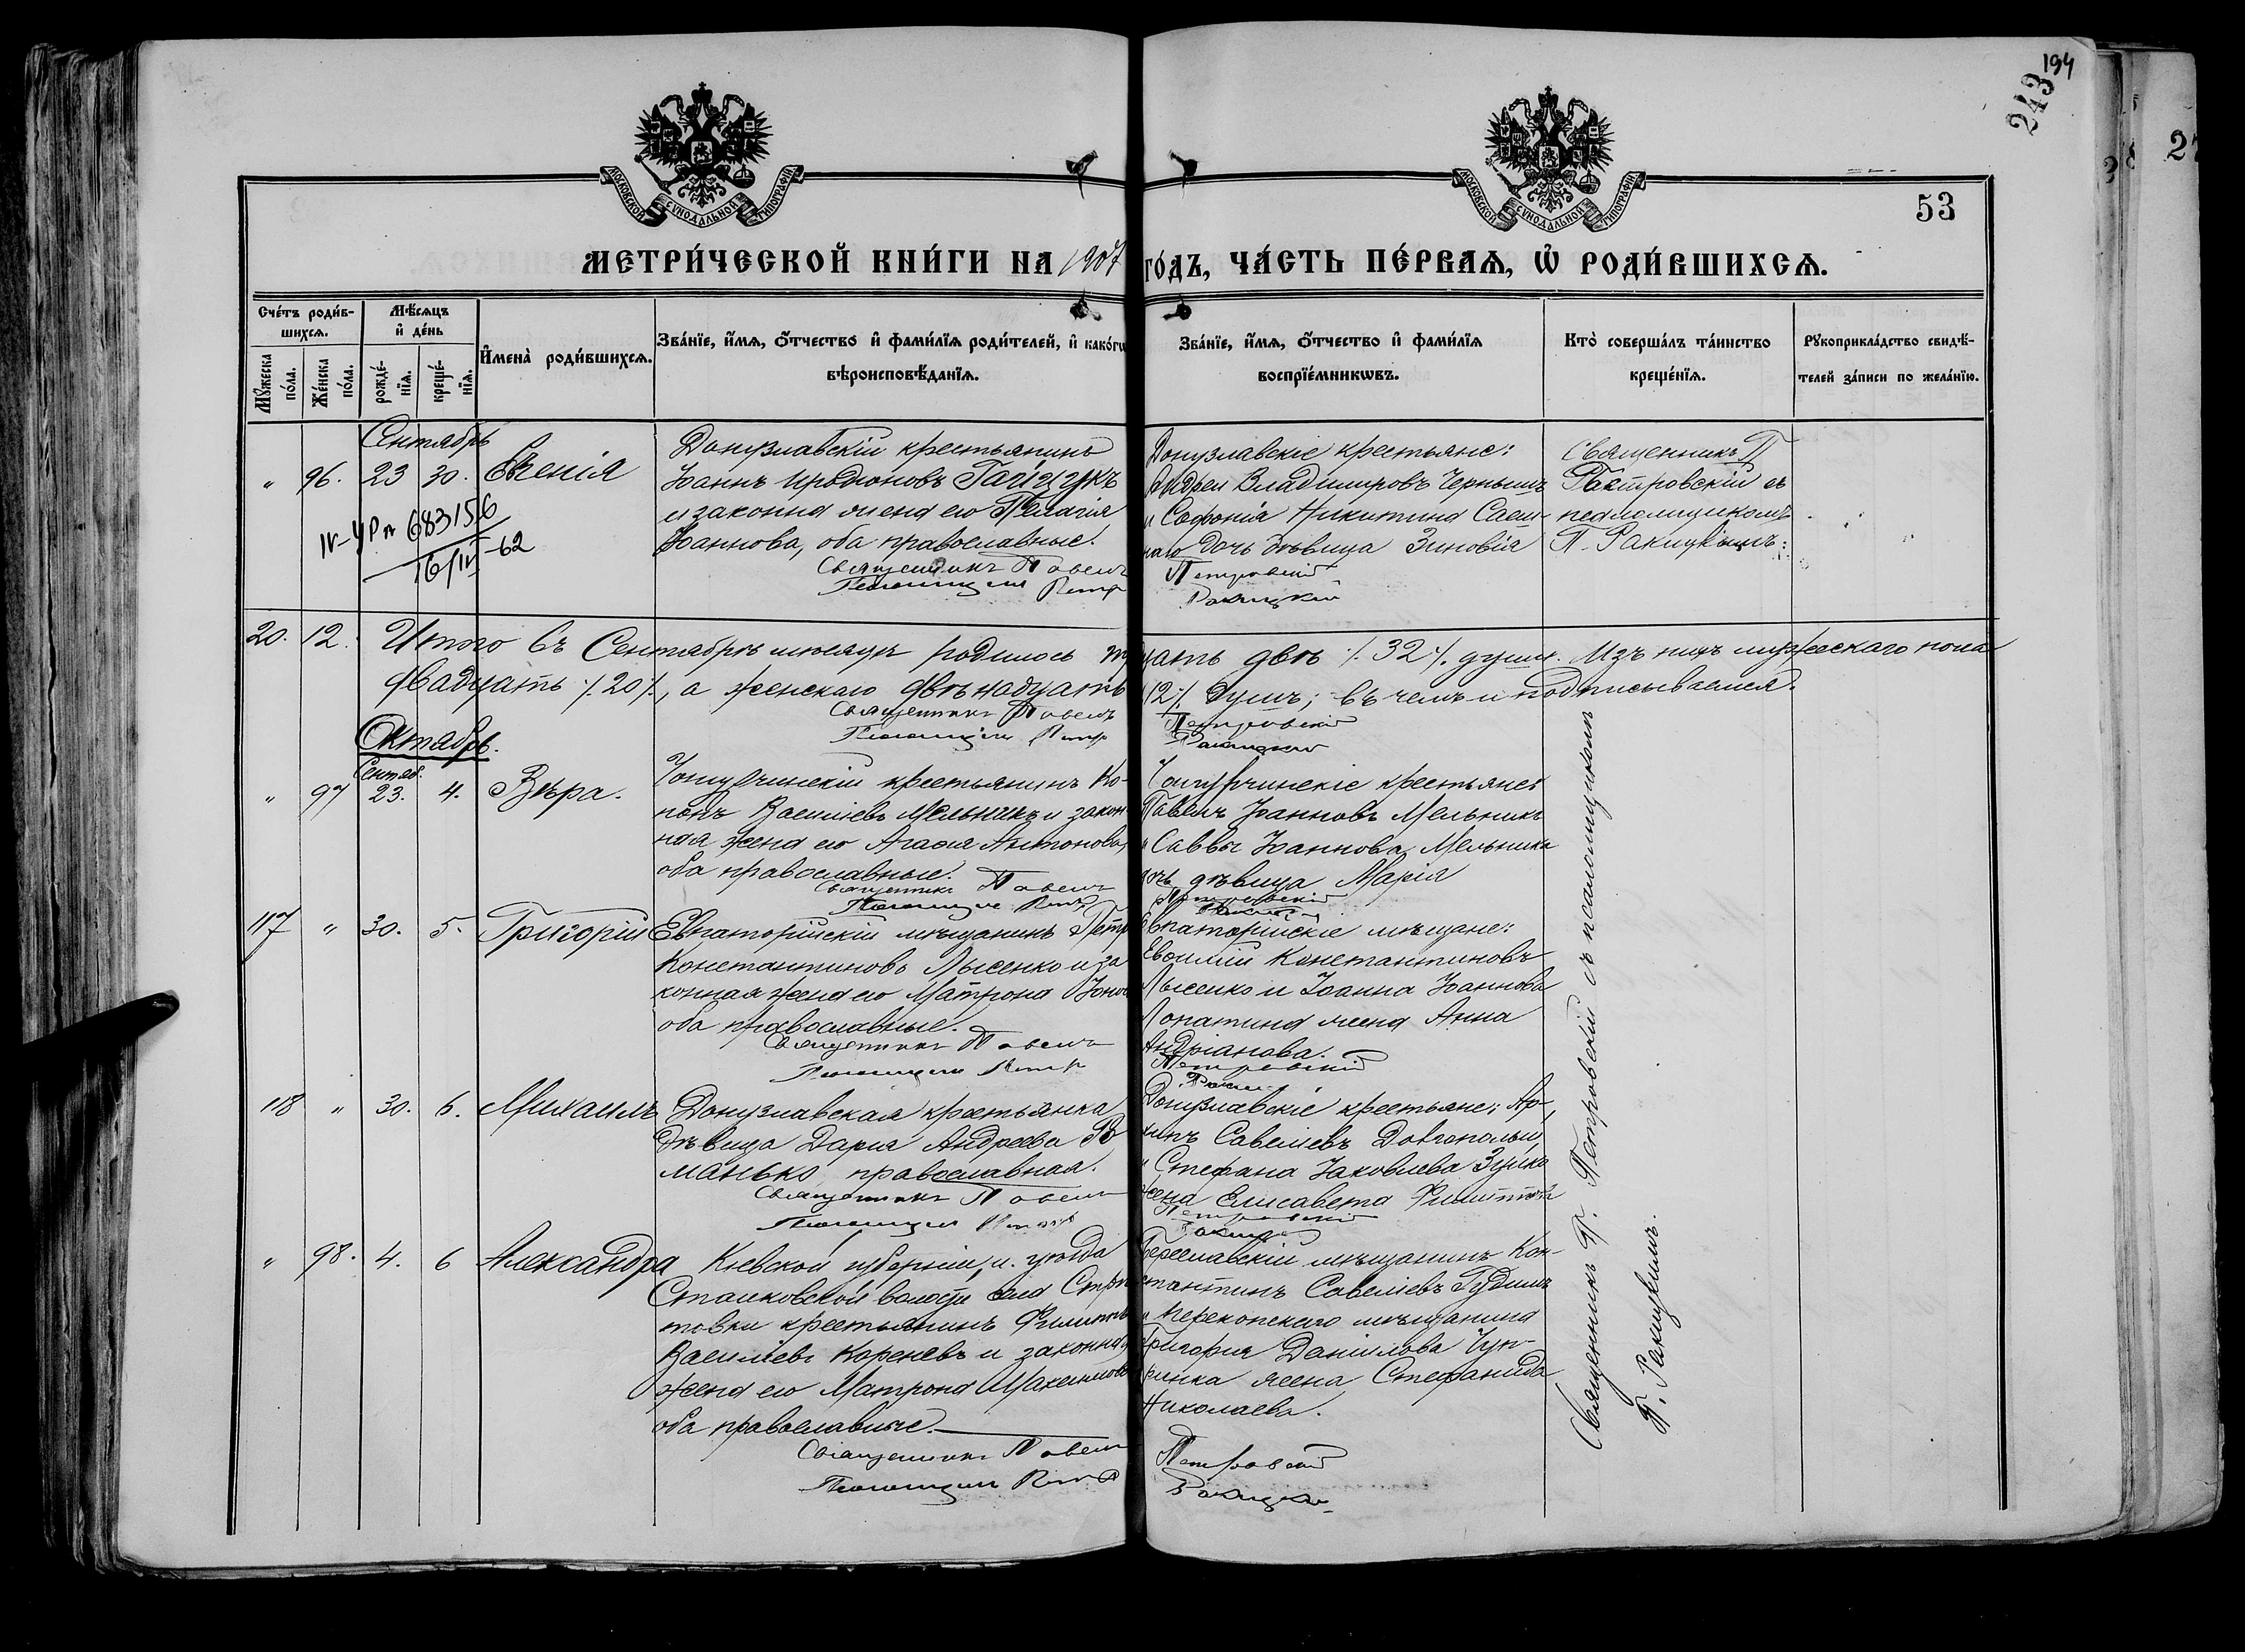 194
243
53
МОСКОВСКОЙ СѴНОДАЛЬНОЙ ТИПОГРАФІИ
МОСКОВСКОЙ СѴНОДАЛЬНОЙ ТИПОГРАФІИ
МЕТРИ́ЧЕСКОЙ КНИ́ГИ НА 1907 ГО́ДЪ, ЧА́СТЬ ПЕ́РВАѦ, Ѡ҆ РОДИ́ВШИХСѦ.
Сче́тъ роди́в-
шихсѧ.
Мꙋ́жеска по́ла.
Же́нска по́ла.
Мѣ́сѧцъ и҆ де́нь
рожде́-нїѧ.
креще́-нїѧ.
И҆мена̀ роди́вшихсѧ.
Зва́нїе, и҆́мѧ, ѻ҆́тчество и҆ фами́лїѧ роди́телей, и҆ како́гѡ
вѣроисповѣ́данїѧ.
Зва́нїе, и҆́мѧ, ѻ҆́тчество и҆ фами́лїѧ
воспрїе́мникѡвъ.
Кто̀ соверша́лъ та́инство
креще́нїѧ.
Рꙋкоприкла́дство свидѣ́-
телей за́писи по жела́нїю.
Сентябрь
" 96. 23 30. Евгенія
Донузлавскій крестьянинъ
Іоаннъ Иродіоновъ Гайчукъ
и законна жена его Пелагія
Іоаннова, оба православные.
Священникъ Павелъ
Псаломщикъ Петръ
Донузлавскіе крестьяне:
Андрей Владиміровъ Чернышъ
и Софонія Никитина
дочь дѣвица Зиновія
Петровскій
Ракицкій
Священникъ П.
Петровскій съ
псаломщикомъ
П. Ракицкимъ.
IV-УР № 683156
16/IV-62
20. 12. Итого въ Сентябрѣ мѣсяцѣ родилось тридцать двѣ ./. 32 ./. души. Изъ нихъ мужескаго пола
двадцать ./. 20 ./., а женскаго двѣнадцать ./. 12 ./. душъ; въ чемъ и подписываемся.
Священникъ Павелъ Петровскій
Псаломщикъ Петръ Ракицкій
Октябрь.
Сентяб.
" 97 23. 4. Вѣра.
крестьянинъ Ко-
нонъ Василіевъ Мельникъ и закон-
ная жена его Агафія Антонова,
оба православные.
Священникъ Павелъ
Псаломщикъ Петръ
крестьяне:
Павелъ Іоанновъ Мельникъ
и Саввы Іоаннова Мельника
дочь дѣвица Марія
Петровскій
Ракицкій
117 " 30. 5. Григорій
Евпаторійскій мѣщанинъ Петръ
Константиновъ Лысенко и за-
конная жена его Матрона
оба православные.
Священникъ Павелъ
Псаломщикъ Петръ
Евпаторійскіе мѣщане:
Евѳимій Константиновъ
Лысенко и Іоанна Іоаннова
Лопатина жена Анна
Андріанова.
Петровскій
118 " 30. 6. Михаилъ
Донузлавская крестьянка
дѣвица Дарія Андреева Ро-
манько, православная.
Священникъ Павелъ
Псаломщикъ Петръ
Донузлавскіе крестьяне: Ар-
хипъ Савеліевъ Довгополый
и Стефана Іаковлева Зуйка
жена Елисавета
Петровскій
Ракицкій
" 98. 4. 6 Александра
Кіевской губерніи, и. уѣзда
волости села
крестьянинъ Филиппъ
Василіевъ Кореневъ и законная
жена его Матрона Максимова
оба православные.
Священникъ Павелъ
Псаломщикъ Петръ
мѣщанинъ Кон-
стантинъ Савеліевъ Гудимъ
и Перекопскаго мѣщанина
Григорія Даніилова
жена Стефанида
Николаева.
Петровскій
Ракицкій
Священникъ П. Петровскій съ псаломщикомъ
П. Ракицкимъ.